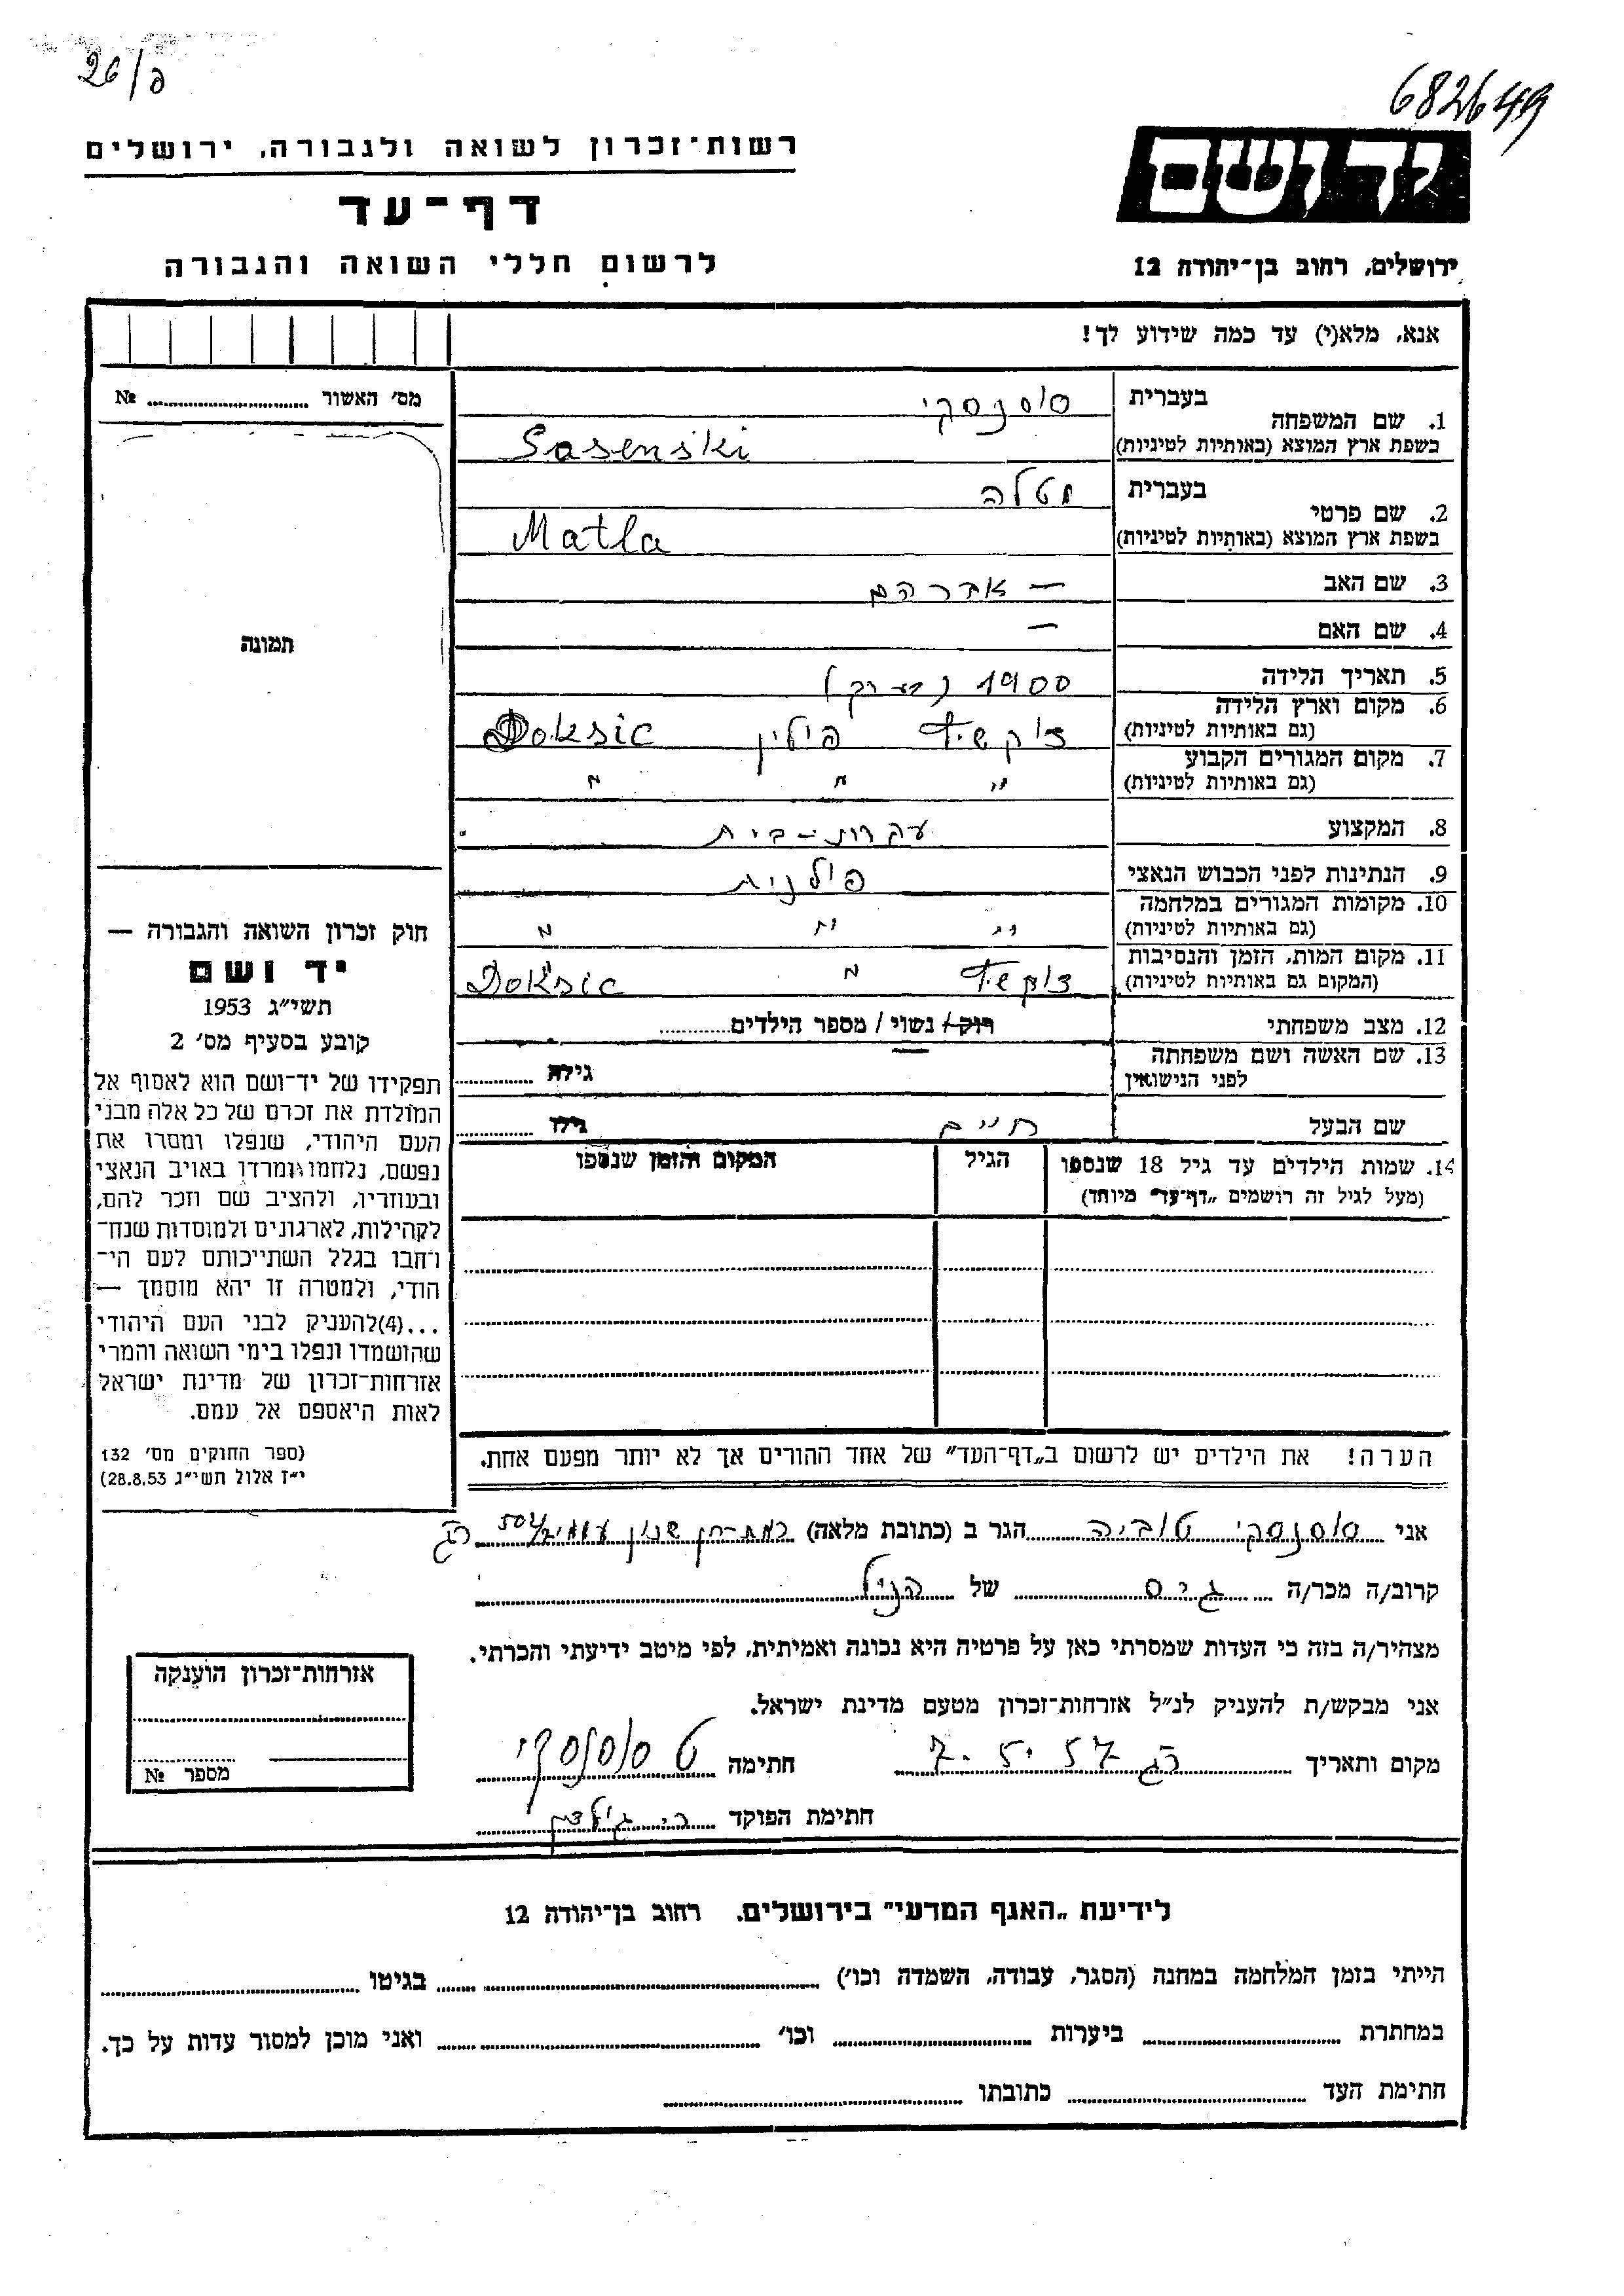 26/פ
682649
רשות־זכרון לשואה ולגבורה, ירושלים
יד ושם
דף־עד
לרשום חללי השואה והגבורה
ירושלים, רחוב בן־יהודה 12
אנא, מלא(י) עד כמה שידוע לך!
מס' האשור № ....................
תמונה
1. שם המשפחה
בעברית סוסנסקי
בשפת ארץ המוצא (באותיות לטיניות) Sasenski
2. שם פרטי
בעברית מטלה
בשפת ארץ המוצא (באותיות לטיניות) Matla
3. שם האב — אברהם
4. שם האם —
5. תאריך הלידה 1900 (בערך)
6. מקום וארץ הלידה
(גם באותיות לטיניות) דוקשיץ פולין Doksic
7. מקום המגורים הקבוע
(גם באותיות לטיניות) " " "
8. המקצוע עקרת-בית
9. הנתינות לפני הכבוש הנאצי פולנית
10. מקומות המגורים במלחמה
(גם באותיות לטיניות) " " "
11. מקום המות, הזמן והנסיבות
(המקום גם באותיות לטיניות) דוקשיץ " Doksic
12. מצב משפחתי רוק/ נשוי / מספר הילדים............
13. שם האשה ושם משפחתה
לפני הנישואין גילה ............
שם הבעל חיים גילו ............
14. שמות הילדים עד גיל 18 שנספו
(מעל לגיל זה רושמים „דף־עד" מיוחד)
הגיל
המקום והזמן שנספו
הערה! את הילדים יש לרשום ב„דף־העד" של אחד ההורים אך לא יותר מפעם אחת.
חוק זכרון השואה והגבורה —
יד ושם
תשי״ג 1953
קובע בסעיף מס' 2
תפקידו של יד־ושם הוא לאסוף אל
המולדת את זכרם של כל אלה מבני
העם היהודי, שנפלו ומסרו את
נפשם, נלחמו ומרדו באויב הנאצי
ובעוזריו, ולהציב שם וזכר להם,
לקהילות, לארגונים ולמוסדות שנח־
רחבו בגלל השתייכותם לעם הי־
הודי, ולמטרה זו יהא מוסמך —
...(4)להעניק לבני העם היהודי
שהושמדו ונפלו בימי השואה והמרי
אזרחות־זכרון של מדינת ישראל
לאות היאספם אל עמם.
(ספר החוקים מס' 132
י״ז אלול תשי״ג 28.8.53)
אני סוסנסקי טוביה הגר ב (כתובת מלאה) רמת-חן שכון רג
קרוב/ה מכר/ה גיס של הנ״ל
מצהיר/ה בזה כי העדות שמסרתי כאן על פרטיה היא נכונה ואמיתית, לפי מיטב ידיעתי והכרתי.
אני מבקש/ת להעניק לנ״ל אזרחות־זכרון מטעם מדינת ישראל.
מקום ותאריך רג 7.5.57 חתימה ט סוסנסקי
חתימת הפוקד
אזרחות־זכרון הוענקה
מספר №
לידיעת „האגף המדעי" בירושלים, רחוב בן־יהודה 12
הייתי בזמן המלחמה במחנה (הסגר, עבודה, השמדה וכו') בגיטו
במחתרת ביערות וכו' ואני מוכן למסור עדות על כך.
חתימת העד כתובתו